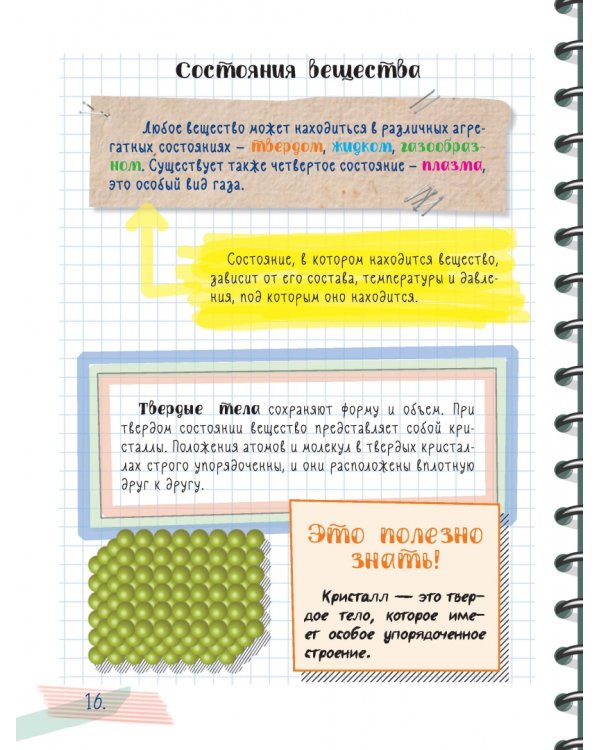 Состояния вещества
Любое вещество может находиться в различных агре-
гатных состояниях – твердом, жидком, газообраз-
ном. Существует также четвертое состояние – плазма,
это особый вид газа.
Состояние, в котором находится вещество,
зависит от его состава, температуры и давле-
ния, под которым оно находится.
Твердые тела сохраняют форму и объем. При
твердом состоянии вещество представляет собой кри-
сталлы. Положения атомов и молекул в твердых кристал-
лах строго упорядоченны, и они расположены вплотную
друг к другу.
Это полезно
знать!
Кристалл — это твер-
дое тело, которое име-
ет особое упорядоченное
строение.
16.